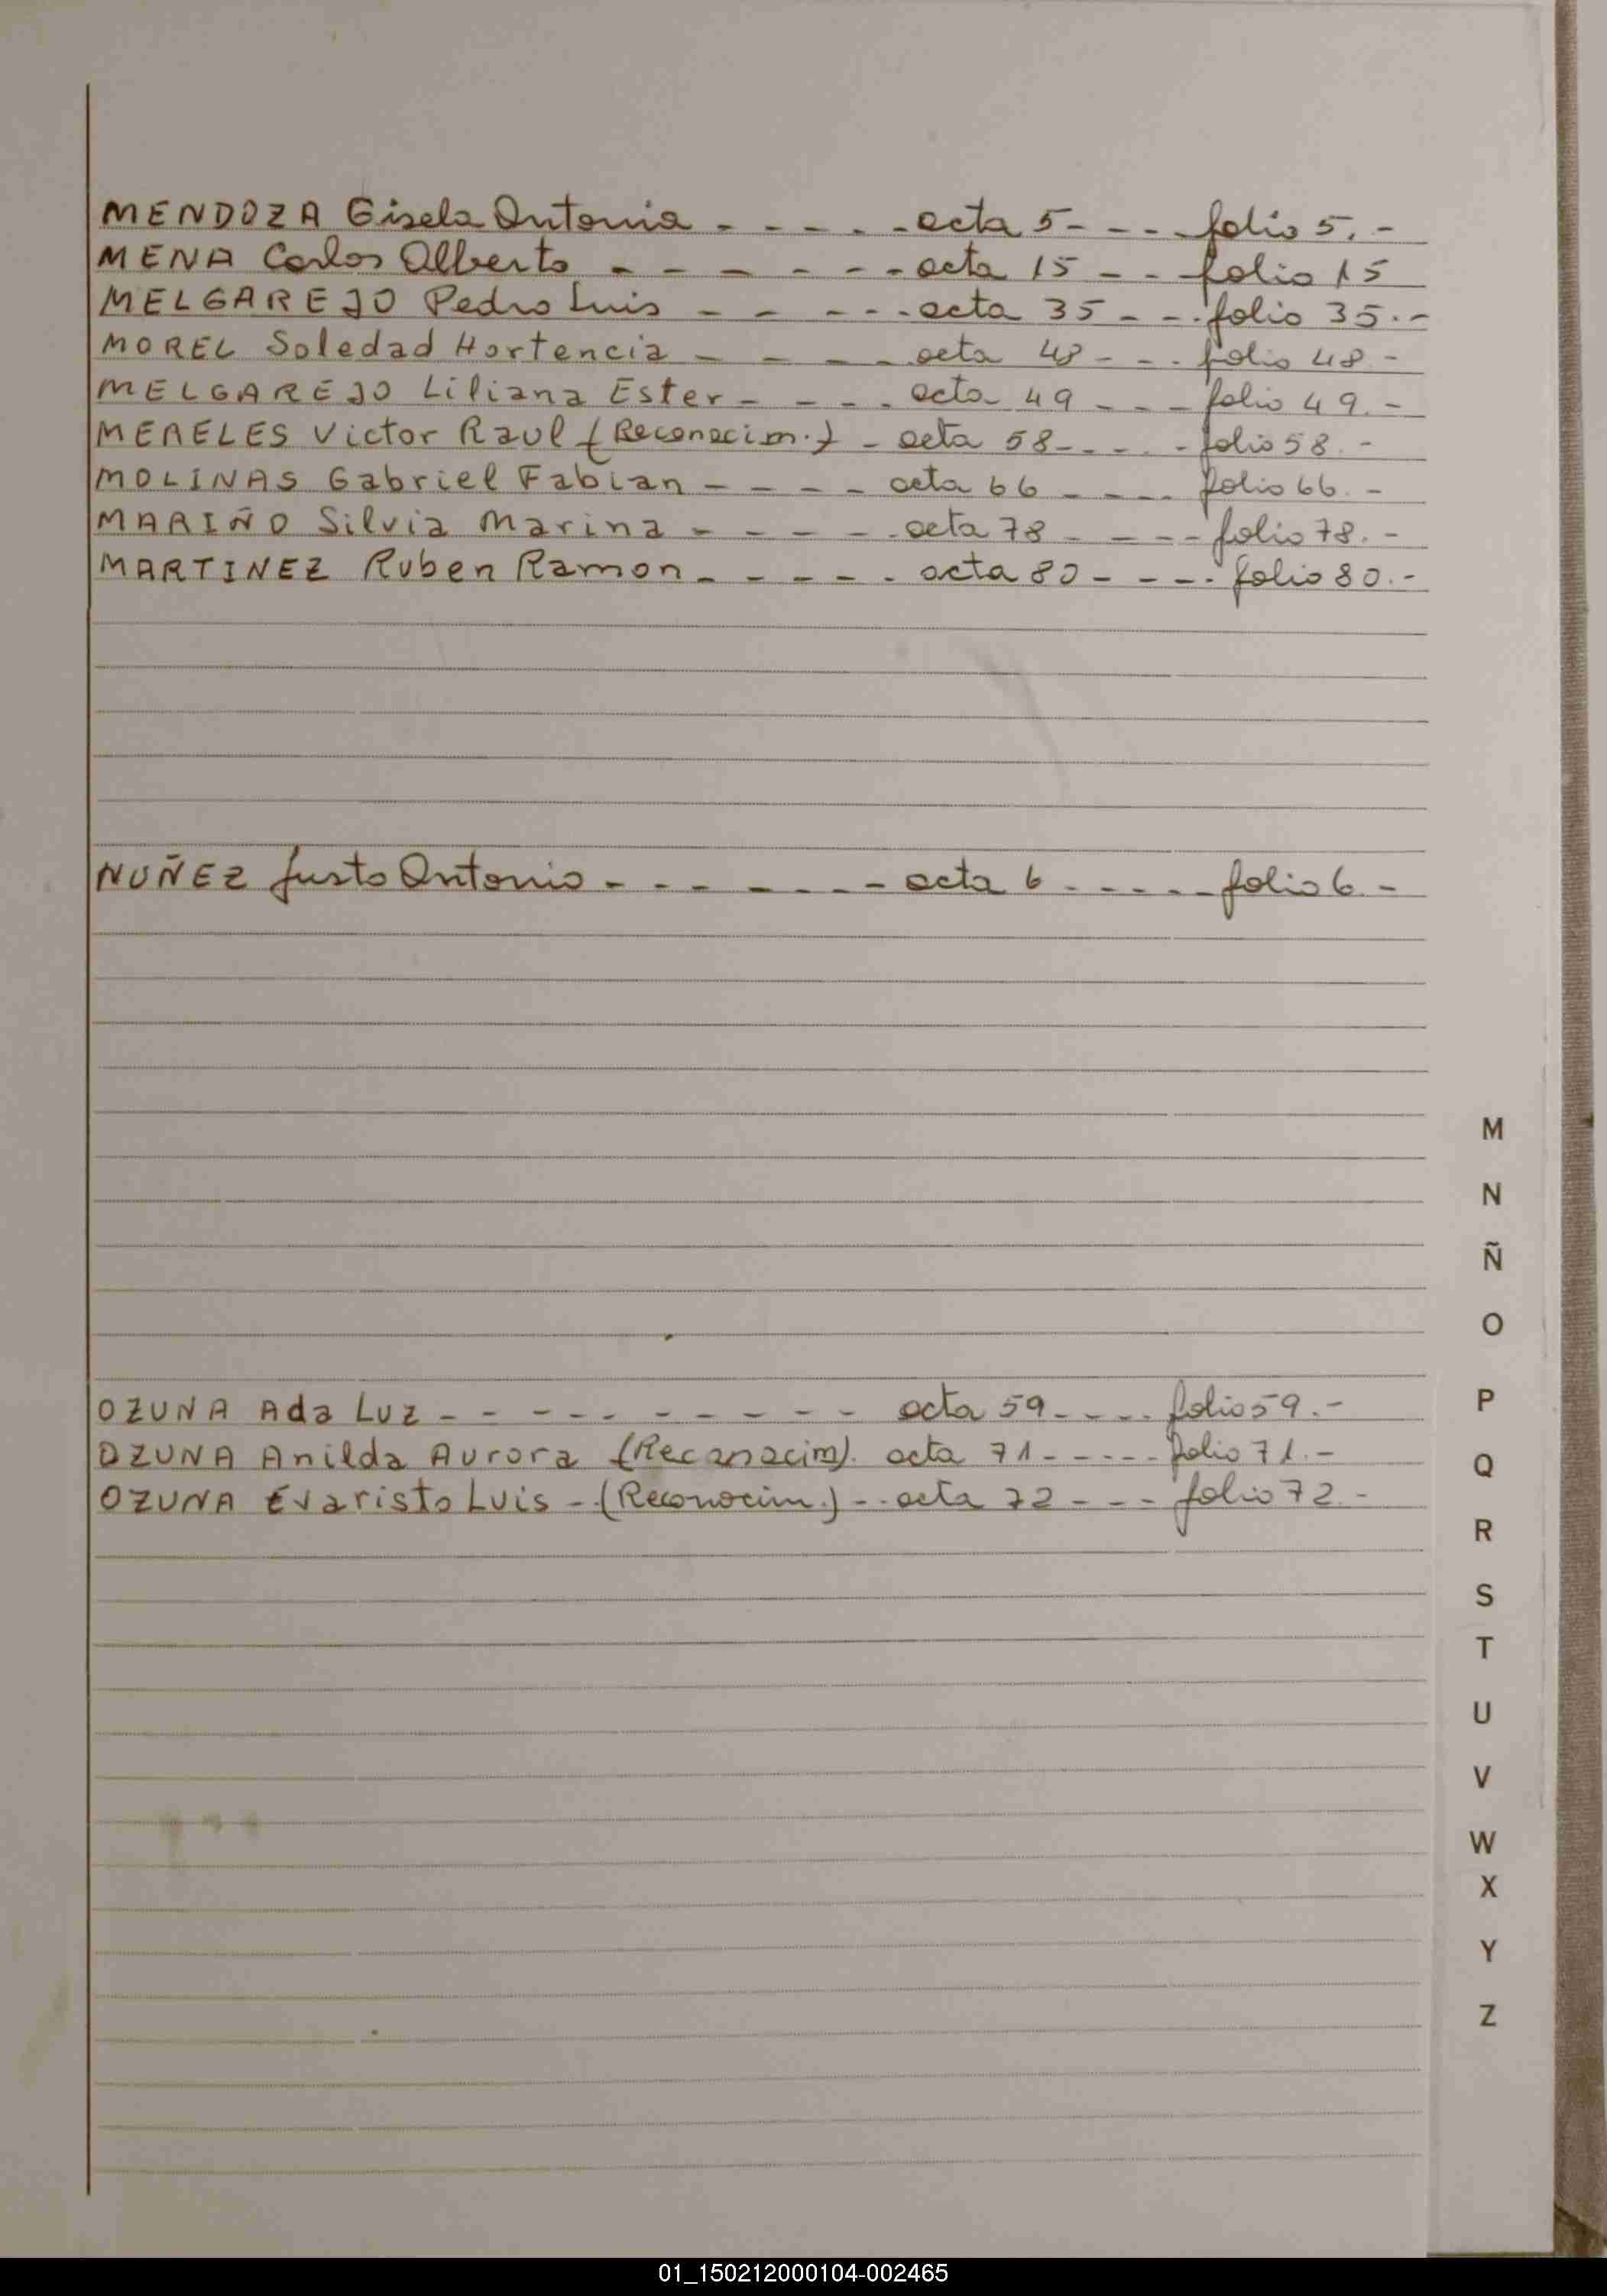 MENDOZA Gisela Antonia - - - - - acta 5 - - - - folio 5. -
MENA Carlos Alberto - - - - - - - acta 15 - - folio 15
MELGAREJO Pedro Luis - - - - - - acta 35 - - - folio 35. -
MOREL Soledad Hortencia - - - - acta 48 - - - folio 48 -
MELGAREJO Liliana Ester - - - - acta 49 - - - folio 49. -
MERELES Victor Raul (Reconocim.) - acta 58 - - - - folio 58. -
MOLINAS Gabriel Fabian - - - - acta 66 - - - - folio 66. -
MARIÑO Silvia Marina - - - - - acta 78 - - - - folio 78. -
MARTINEZ Ruben Ramon - - - - - acta 80 - - - - folio 80. -
NUÑEZ Justo Antonio - - - - - - - acta 6 - - - - - folio 6. -
M
N
Ñ
O
OZUNA Ada Luz - - - - - - - - - acta 59 - - - - folio 59. -
P
OZUNA Anilda Aurora (Reconocim). acta 71 - - - - - folio 71. -
Q
OZUNA Evaristo Luis - (Reconocim.) - - acta 72 - - - folio 72. -
R
S
T
U
V
W
X
Y
Z
01_150212000104-002465